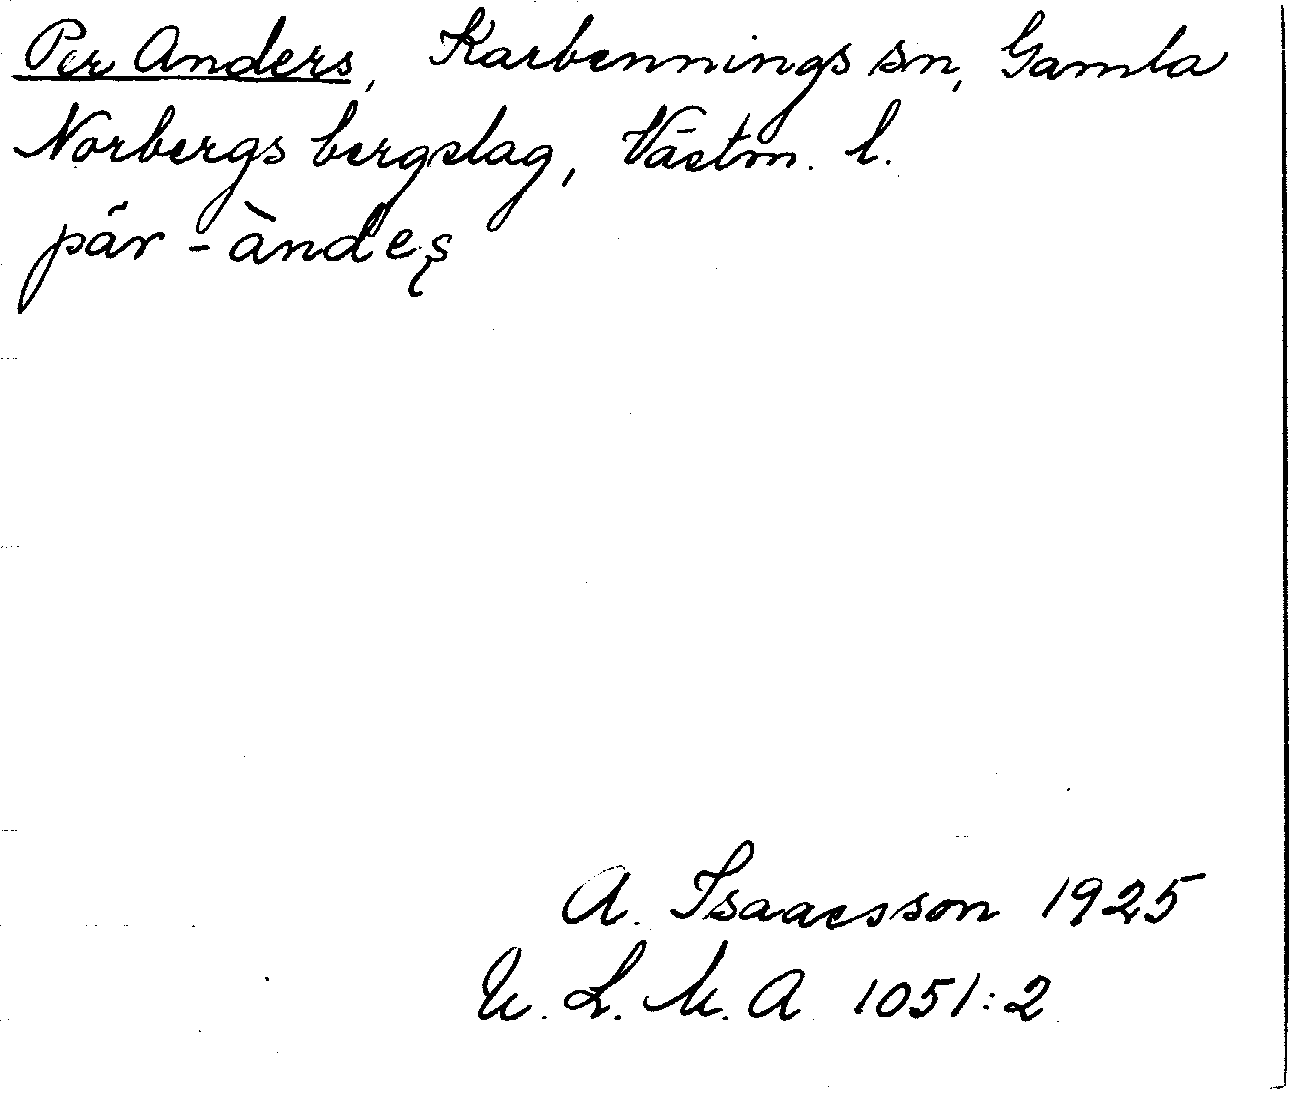 Per Anders, Karbennings sn, Gamla
Norbergs bergslag, Västm. l.
pär - àndeş
A. Isaacsson 1925
U. L. M. A 1051:2